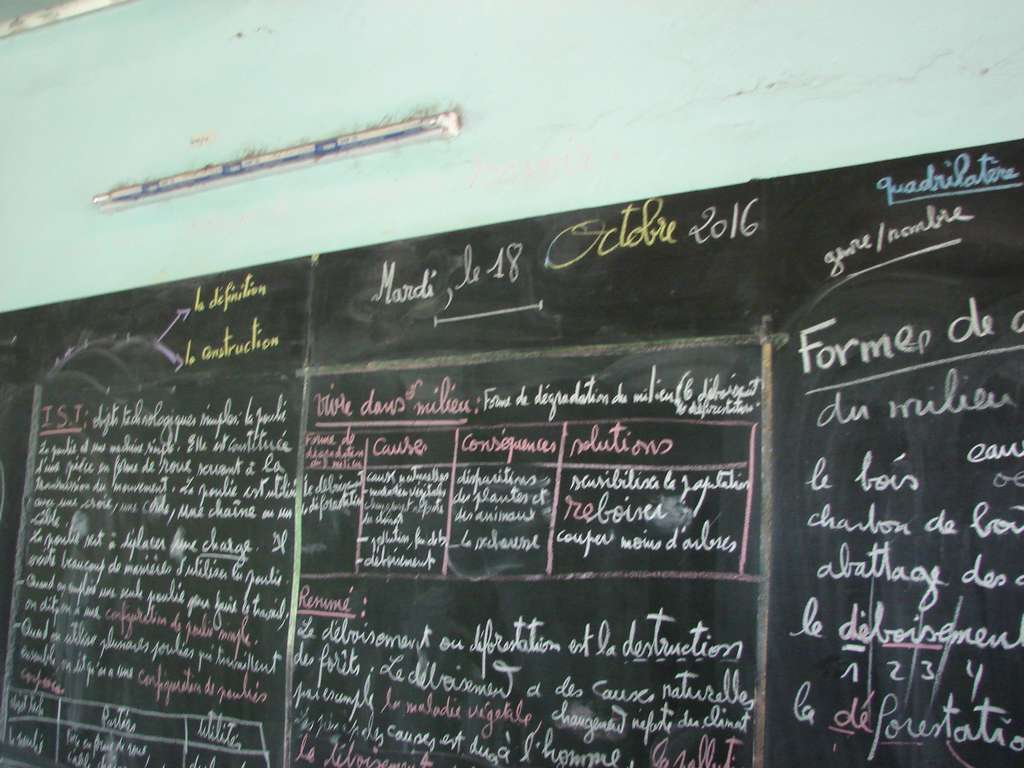 la définition
la construction
I.S.T: objets technologiques simples: la poulie
La poulie est une machine simple. Elle est constituée
d'une pièce en forme de roue servant à la
transmission du mouvement. La poulie est utilisée
avec une croix, une corde, une chaîne ou un
câble.
La poulie sert à déplacer une charge. Il
existe beaucoup de manières d'utiliser les poulies.
- Quand on emploie une seule poulie pour faire le travail,
on dit on a une configuration de poulie simple.
- Quand on utilise plusieurs poulies qui travaillent
ensemble, on dit qu'on a une configuration de poulies
Parties
Utilités
Mardi, le 18 Octobre 2016
Vivre dans son milieu: Forme de dégradation du milieu (le déboisement
la déforestation
Forme de dégradation du milieu
Causes
Conséquences
solutions
le déboisement
la déforestation
causes naturelles
- maladies végétales
changement néfaste
du climat
- déboisement
disparitions
des plantes et
des animaux
- la sécheresse
sensibiliser la population
reboiser
couper moins d'arbres
Resumé:
Le déboisement ou déforestation est la destruction
des forêts. Le déboisement a des causes naturelles
par exemple la maladie végétale, changement néfaste du climat
des causes est du à l'homme.
le déboisement
quadrilatère
genre/nombre
Formes de
du milieu
eau
le bois
charbon de boi
abattage des
le déboisement
1 2 3 4
la déforestati